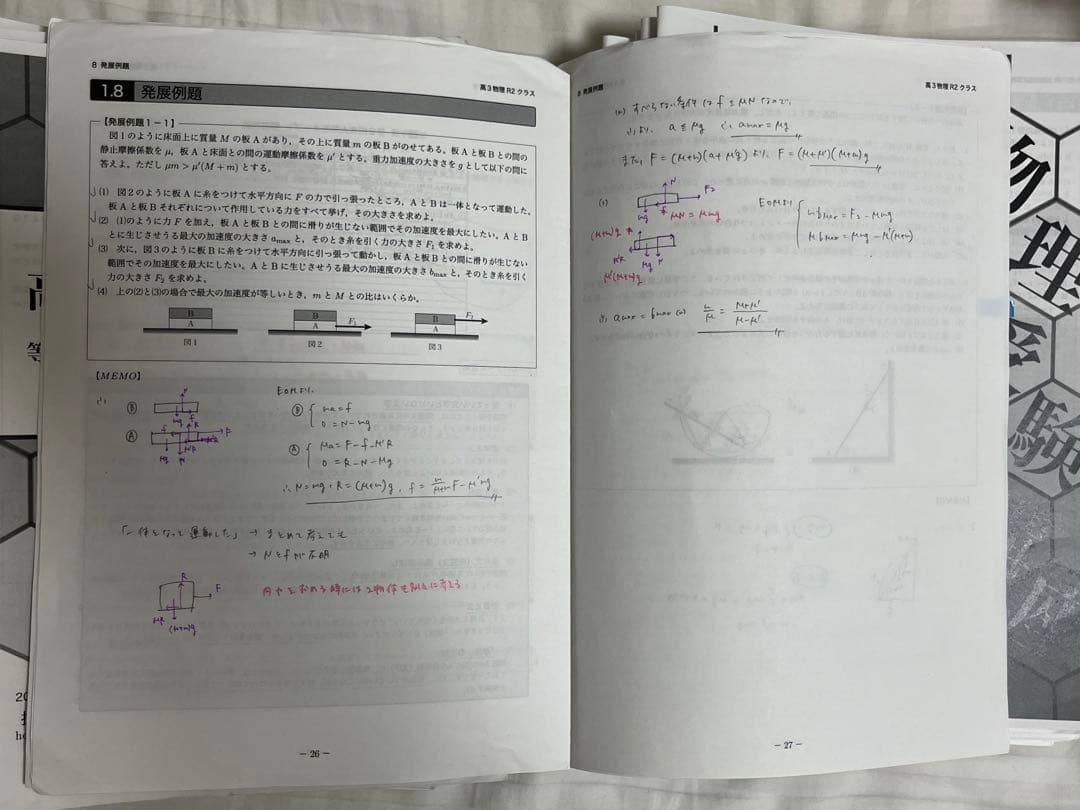 8 発展例題
高3物理R2クラス
1.8 発展例題
【発展例題1−1】
図1のように床面上に質量 M の板 A があり，その上に質量 m の板 B がのせてある。板 A と板 B との間の
静止摩擦係数を μ，板 A と床面との間の運動摩擦係数を μ′ とする。重力加速度の大きさを g として以下の問に
答えよ。ただし μm > μ′(M + m) とする。
(1) 図2のように板 A に糸をつけて水平方向に F の力で引っ張ったところ，A と B は一体となって運動した。
板 A と板 B それぞれについて作用している力をすべて挙げ，その大きさを求めよ。
(2) (1)のように力 F を加え，板 A と板 B との間に滑りが生じない範囲でその加速度を最大にしたい。A と B
とに生じさせうる最大の加速度の大きさ amax と，そのとき糸を引く力の大きさ F1 を求めよ。
(3) 次に，図3のように板 B に糸をつけて水平方向に引っ張って動かし，板 A と板 B との間に滑りが生じない
範囲でその加速度を最大にしたい。A と B に生じさせうる最大の加速度の大きさ bmax と，そのとき糸を引く
力の大きさ F2 を求めよ。
(4) 上の(2)と(3)の場合で最大の加速度が等しいとき，m と M との比はいくらか。
B
A
図1
B
A
F1
図2
B
A
F2
図3
【MEMO】
(1)
EOMより.
Ⓑ
ma = f
0 = N − mg
Ⓐ
Ma = F − f − μ′R
0 = R − N − Mg
∴ N = mg, R = (M+m)g, f = m/(M+m) F − μ′mg
「一体となって運動した」 → まとめて考えても
→ Nとfが不明
R
F
(M+m)g
内力を求める時には2物体を別々に考える
− 26 −
8 発展例題
高3物理R2クラス
(2) すべらない条件は f ≦ μN なので.
(1)より. a ≦ μg ∴ amax = μg
また, F = (M+m)(a+μ′g) より. F = (μ+μ′)(M+m)g
N
F2
mg
μN = μmg
EOMより
m bmax = F2 − μmg
M bmax = μmg − μ′(M+m)g
(M+m)g
μ′R
Mg
μ′(M+m)g
∴ amax = bmax のとき m/M = (μ+μ′)/(μ−μ′)
− 27 −
物理
験